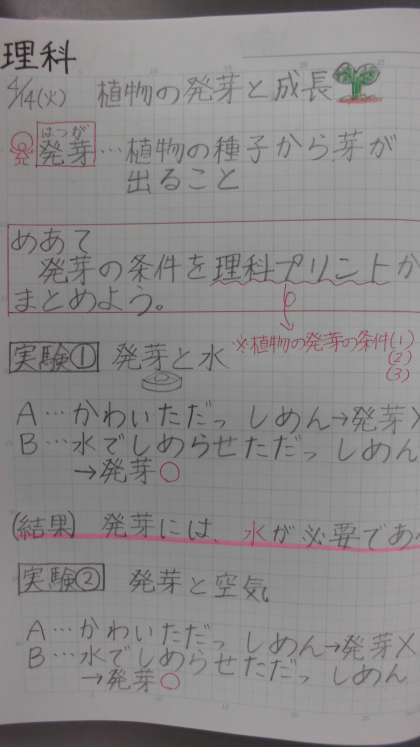 理科
4/14(火) 植物の発芽と成長
はつが
発芽…植物の種子から芽が
出ること
めあて
発芽の条件を理科プリントか
まとめよう。
※植物の発芽の条件(1)
(2)
(3)
実験① 発芽と水
A…かわいただっしめん→発芽×
B…水でしめらせただっしめん
→発芽○
(結果) 発芽には、水が必要であ
実験② 発芽と空気
A…かわいただっしめん→発芽×
B…水でしめらせただっしめん
→発芽○